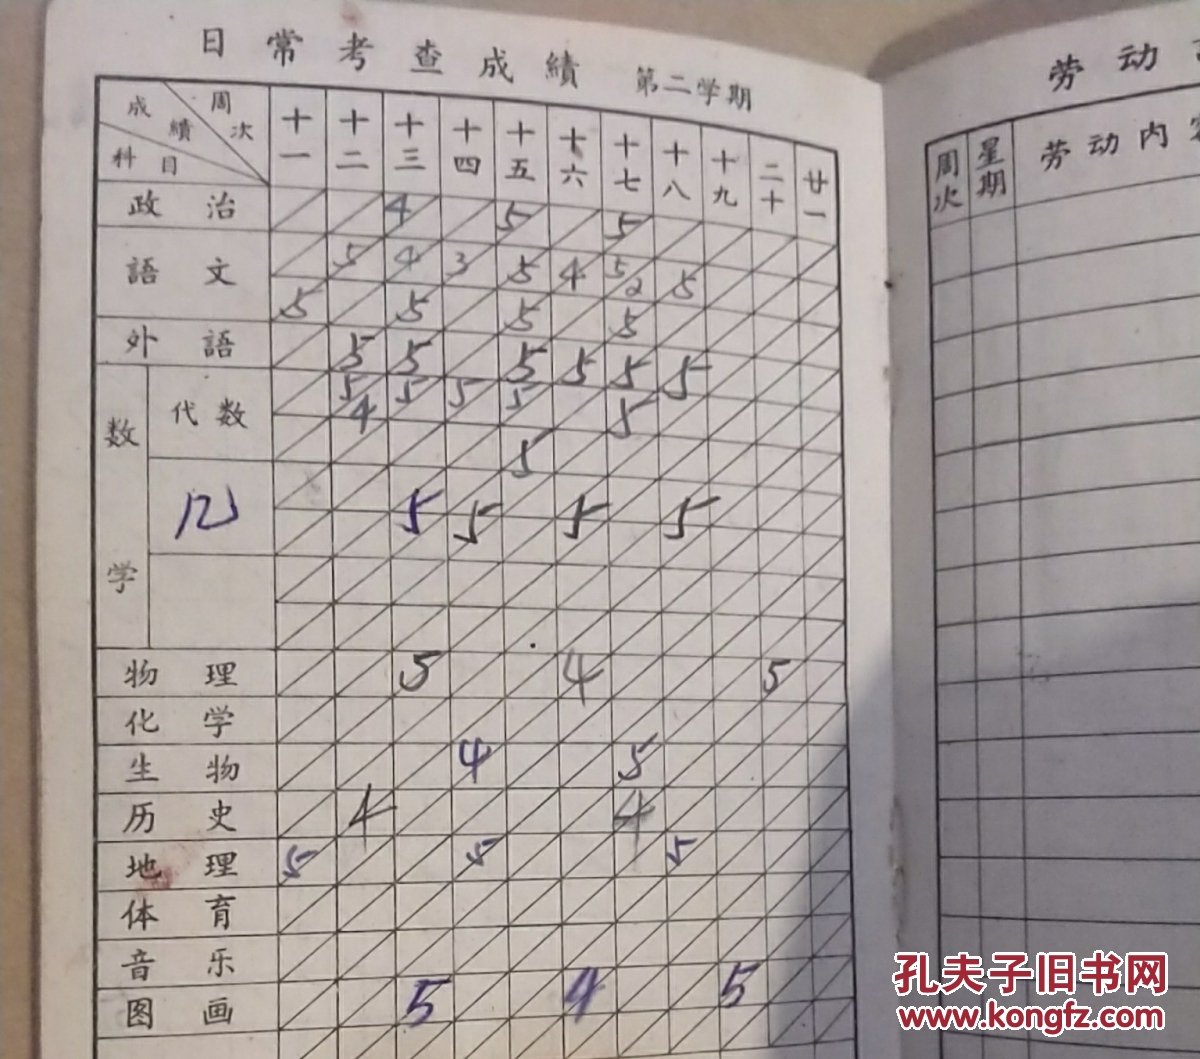 日常考查成績 第二学期
成績 周次 科目 十一 十二 十三 十四 十五 十六 十七 十八 十九 二十 廿一
政治 4 5 5
語文 5 4 3 5 4 5 2 5
5 5 5 5
外語 5 5 5 5 5 5
数学 代数 5 5 5 5
4 5
5
几 5 5 5 5
物理 5 4 5
化学
生物 4 5
历史 4 4
地理 5 5 5
体育
音乐
图画 5 4 5
劳动
周次 星期 劳动内
孔夫子旧书网
www.kongfz.com